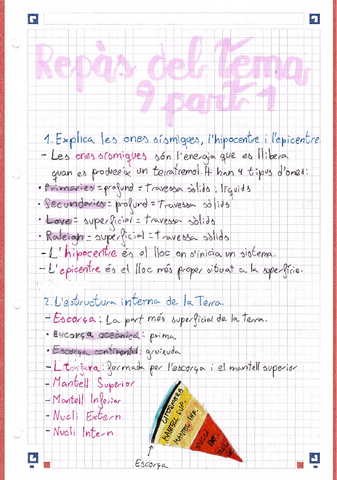 Repàs del Tema
9 part 1
1. Explica les ones sísmiques, l'hipocentre i l'epicentre
- Les ones sísmiques són l'energia que es llibera
quan es produeix un terratrèmol. Hi han 4 tipus d'ones:
• Primaries = profund = Travessa sòlids i líquids
• Secundaries = profund = Travessa sòlids
• Love = superficial = travessa sòlids
• Raleigh = superficial = travessa sòlids
- L'hipocentre és el lloc on s'inicia un sistema.
- L'epicentre és el lloc més proper situat a la superfície.
2. L'estructura interna de la Terra.
- Escorça: La part més superficial de la terra.
• Escorça oceànica: prima
• Escorça continental: gruixuda
- Litosfera: formada per l'escorça i el mantell superior
- Mantell Superior
- Mantell Inferior
- Nucli Extern
- Nucli Intern
LITOSFERA
MANTELL SUP.
MANTELL INF.
NUCLI
EXT.
NUCLI
INT.
Escorça